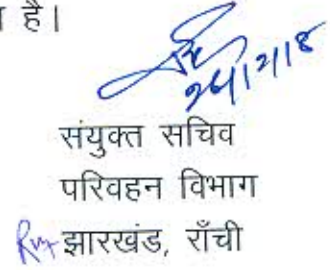 है।
24/12/18
संयुक्त सचिव
परिवहन विभाग
झारखंड, राँची